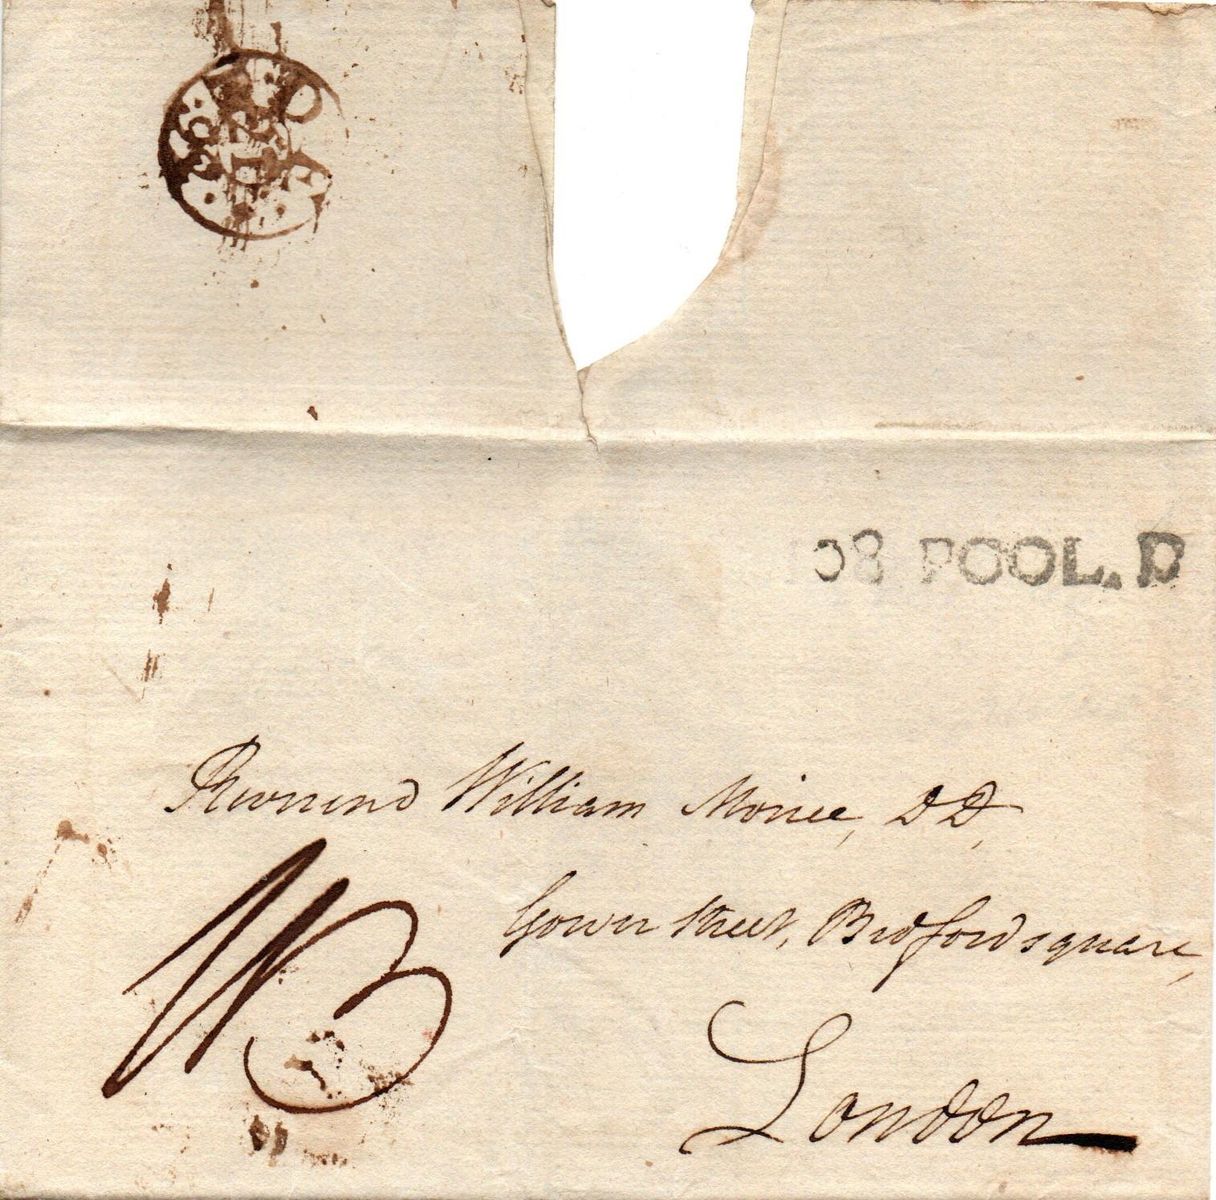 108 POOL. D
Reverend William Morice, D D,
Gower Street, Bedford square,
London